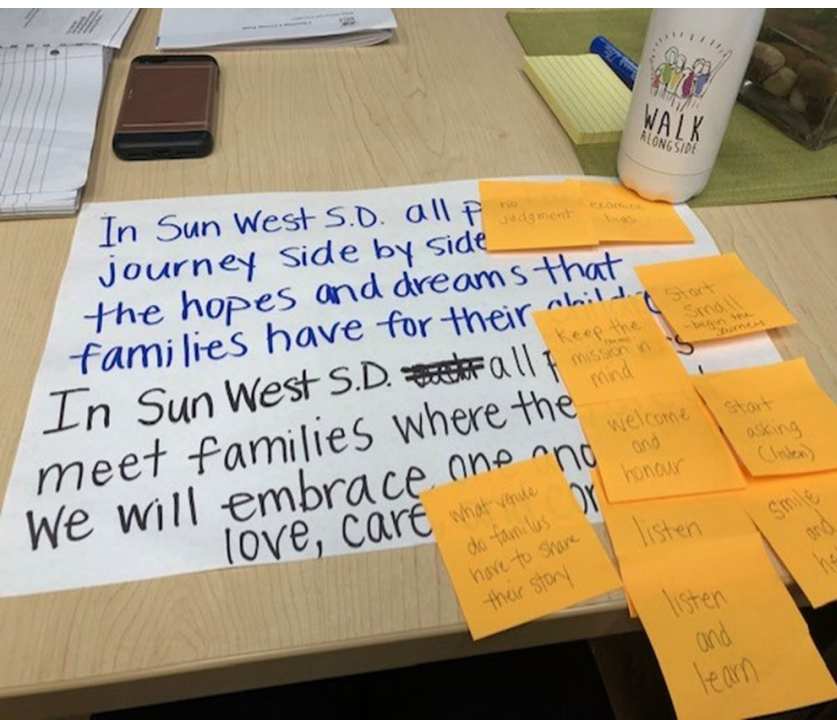 WALK
ALONGSIDE
In Sun West S.D. all
journey side by side
the hopes and dreams that
families have for their
In Sun West S.D. all
meet families where the
We will embrace one and
love, care
no
judgment
examine
bias
Start
small
-begin the
journey
Keep the
mission in
mind
welcome
and
honour
start
asking
(listen)
what venue
do families
have to share
their story
listen
smile
and
listen
and
learn